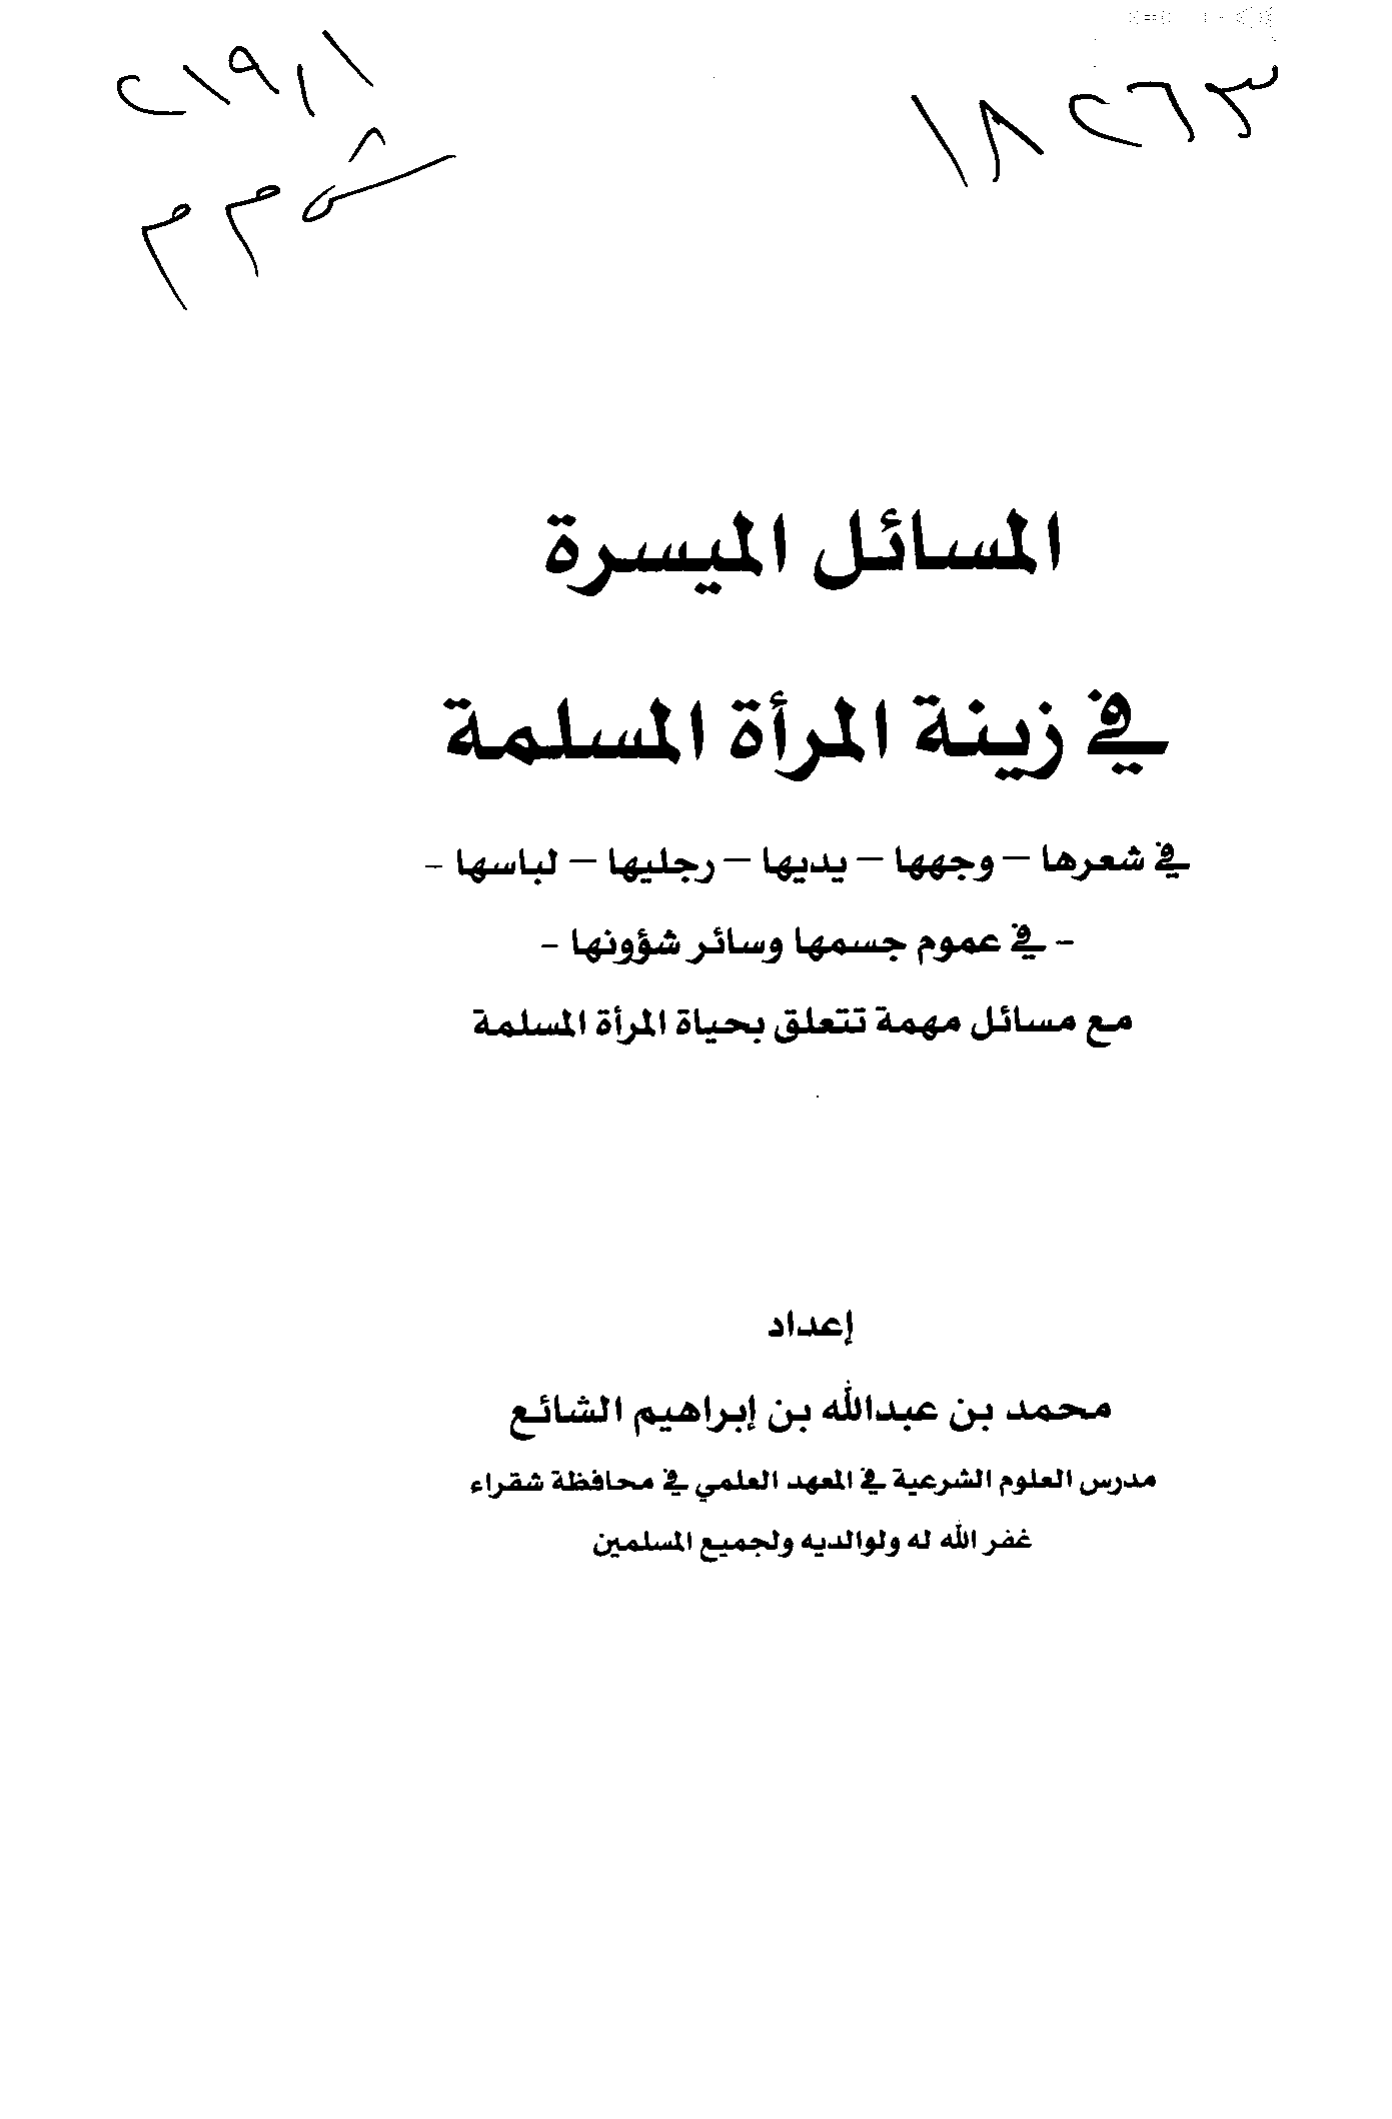 ١٨٢٦٣
٢١٩٫١
ش م م
المسائل الميسرة
في زينة المرأة المسلمة
في شعرها – وجهها – يديها – رجليها – لباسها -
- في عموم جسمها وسائر شؤونها -
مع مسائل مهمة تتعلق بحياة المرأة المسلمة
إعداد
محمد بن عبدالله بن إبراهيم الشائع
مدرس العلوم الشرعية في المعهد العلمي في محافظة شقراء
غفر الله له ولوالديه ولجميع المسلمين